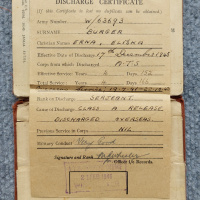 DISCHARGE CERTIFICATE
(If this Certificate is lost no duplicate can be obtained.)
Army Number W/63693
SURNAME BURGER
Christian Names ERNA, ELISKA
Effective Date of Discharge 17th December 1945
Corps from which Discharged A.T.S.
Service Years Days
Rank on Discharge SERGEANT
Cause of Discharge CLASS A RELEASE
DISCHARGED OVERSEAS
Previous Service in Corps NIL
Military Conduct Very Good
Signature and Rank
Officer i/c Records.